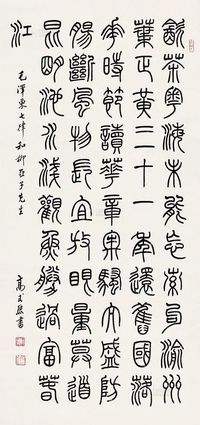 飲茶粵海未能忘索句渝州
葉正黃三十一年還舊國落
花時節讀華章牢騷太盛防
腸斷風物長宜放眼量莫道
昆明池水淺觀魚勝過富春
江
毛澤東七律和柳亞子先生
高式熊書